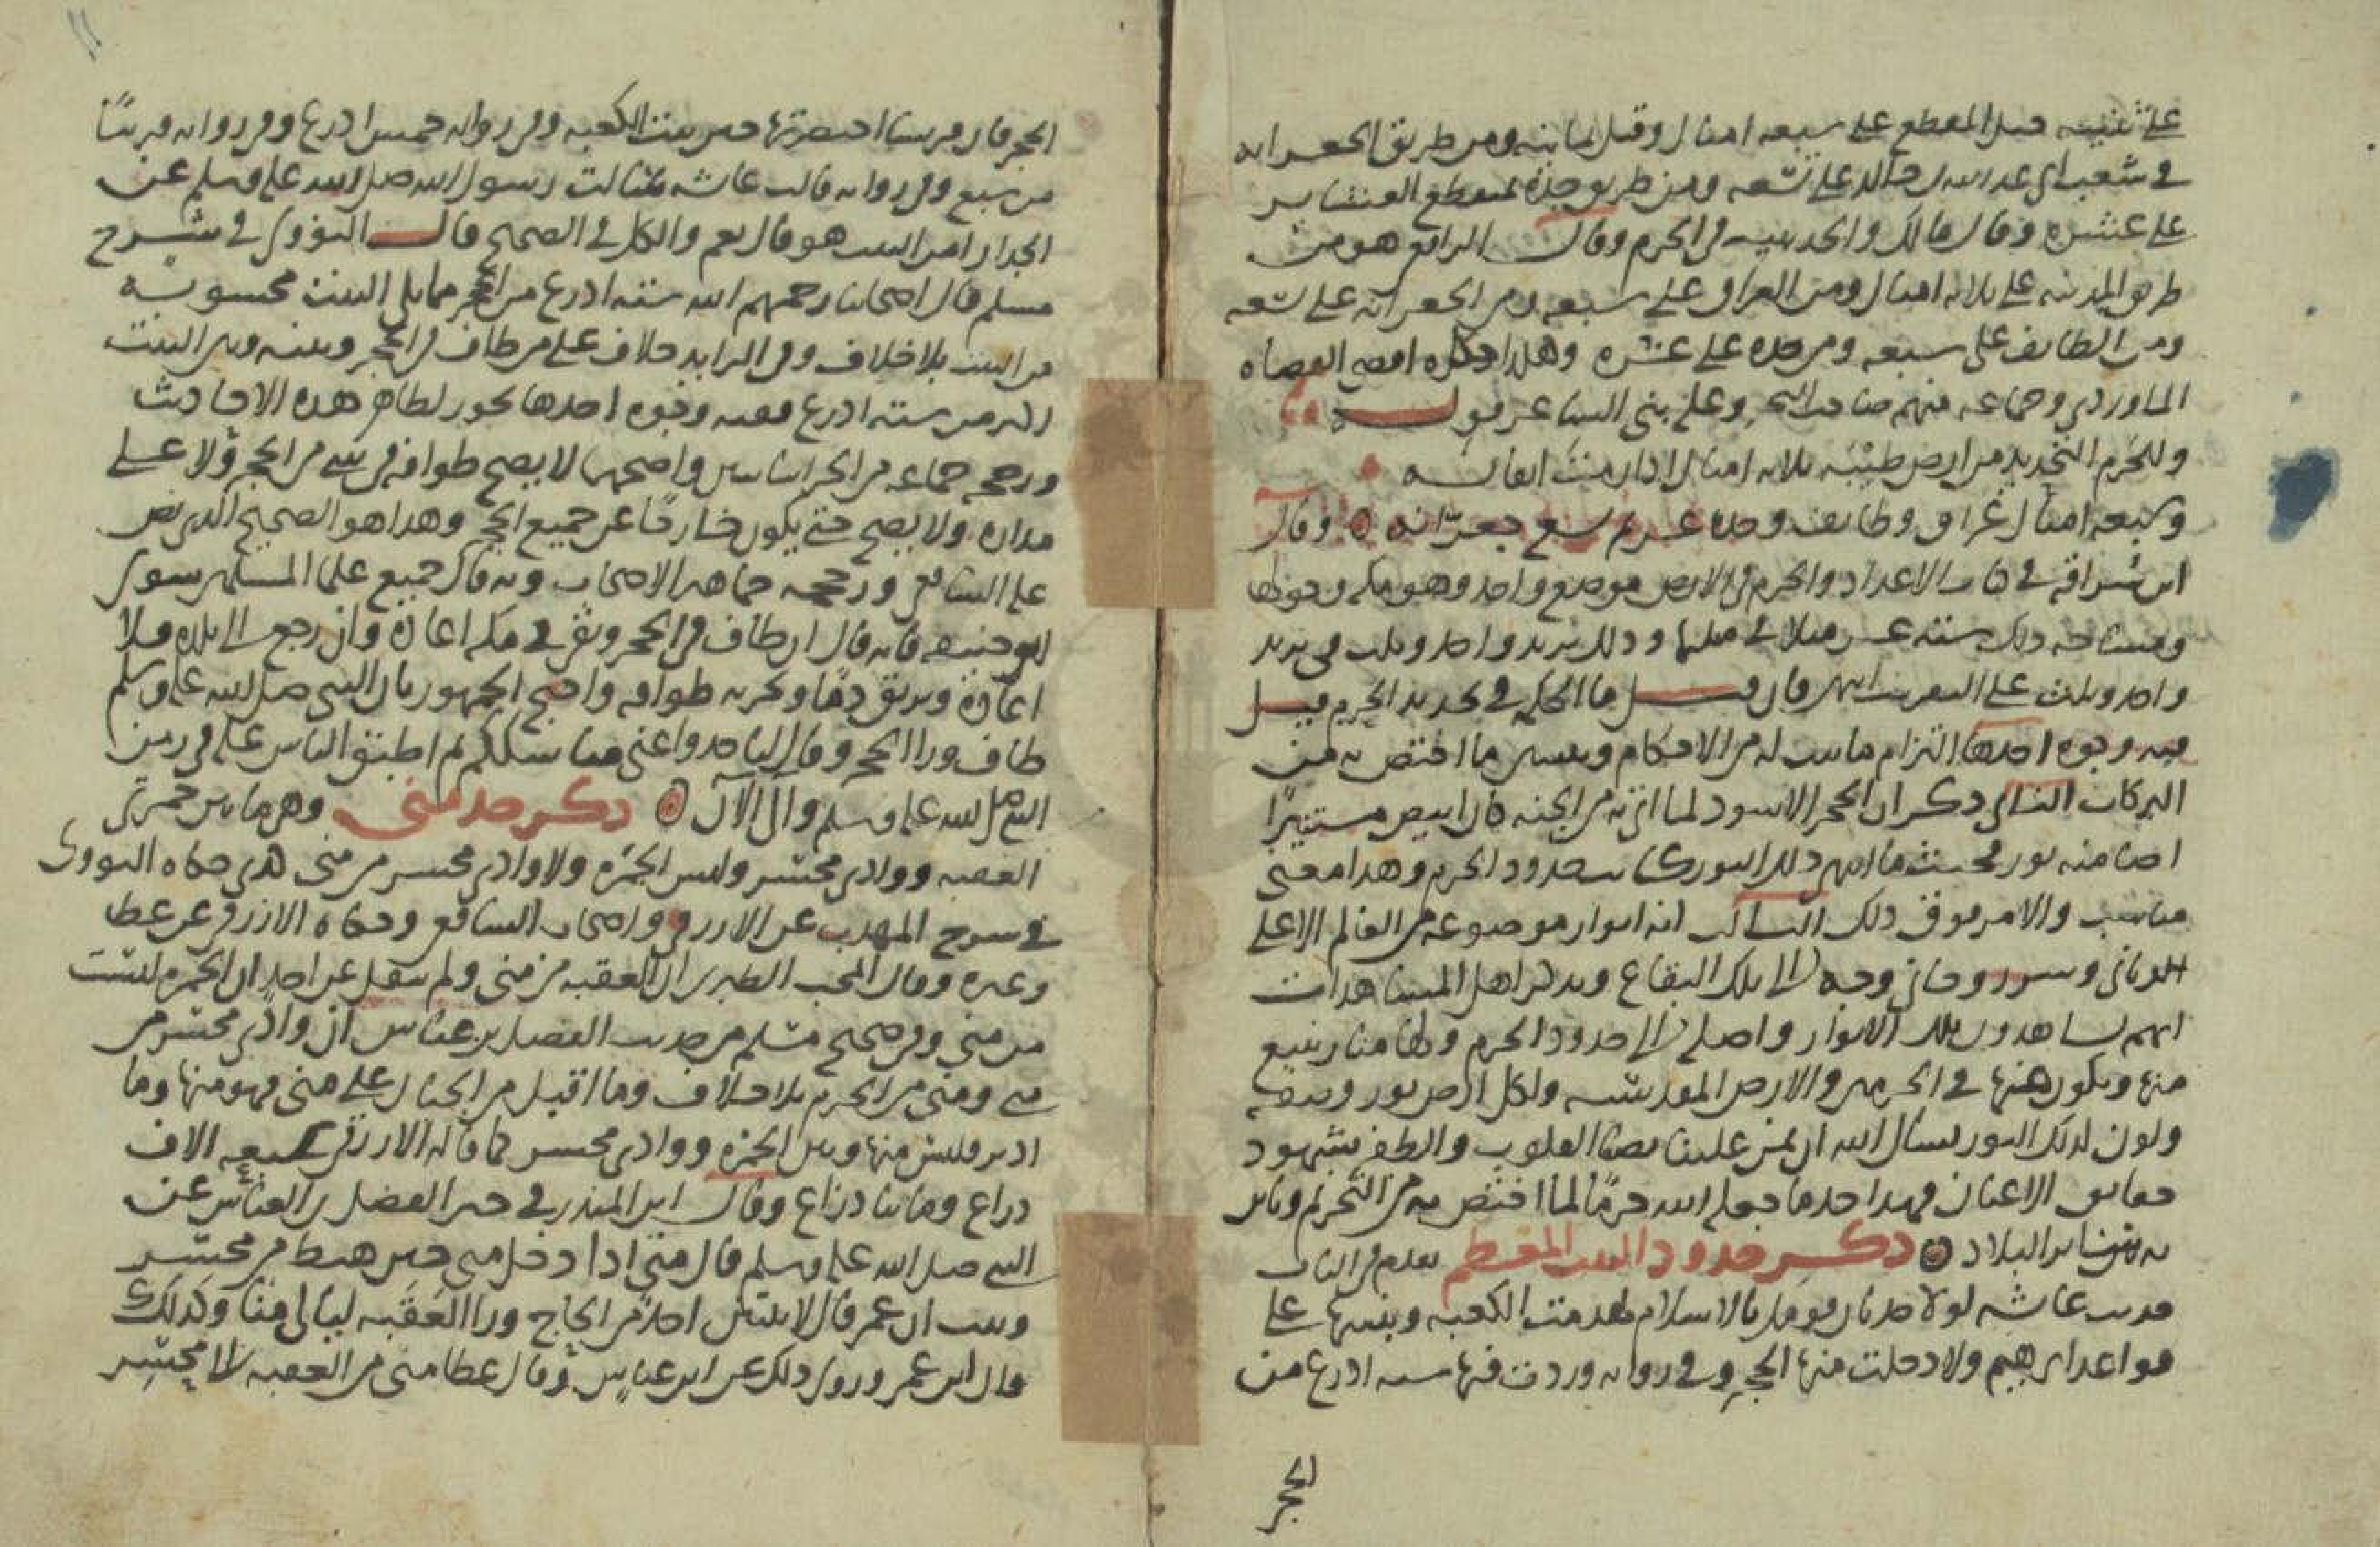 على ثنية جبل المقطع على سبعه اميال وقيل ثمانيه ومن طريق الجعرانه
في شعب ال عبد الله بن خالد على تسعه ومن طريق جدة لمنقطع العشاير
على عشره وقال مالك والحديبيه في الحرم وقال الرافعي هو من
طريق المدينه على ثلاثه اميال ومن العراق على سبعه ومن الجعرانه على تسعه
ومن الطايف على سبعه ومن جده على عشره وهكذا حكاه اقضى القضاه
الماوردي وجماعه منهم صاحب وعلى بنى الشاعر قوله
وللحرم التحديد من ارض طيبه ثلاثه اميال اذا رمت اتقانه
وسبعه اميال عراق وطايف وجده عشر ثم تسع جعرانه وقال
ابن سراقه في كتاب الاعداد والحرم في الارض موضع واحد وهو مكه وحولها
ومساحه ذلك سته عشر ميلا في مثلها وذلك بريد واحد وثلث في بريد
واحد وثلث على التقريب انتهى فان قيل ما الحكمه في تحديد الحرم قيل
فيه وجوه احدها التزام ما ثبت له من الاحكام وتبيين ما اختص به من
البركات الثاني ذكر ان الحجر الاسود لما اتي به من الجنه كان ابيض مستنيرا
اضا منه نور فحيث ما انتهى ذلك النور كانت حدود الحرم وهذا معنى
مناسب والامر فوق ذلك الثالث انه انوار موضوعه من العالم الاعلى
وسر روحاني وجه الى تلك البقاع ويذكر اهل المشاهدات
انهم يشاهدون تلك الانوار واصله الى حدود الحرم ولها منار ينبع
منها ويكون عنها في الحرمين والارض المقدسه ولكل ارض نور وصفه
ولون لذلك النور نسال الله ان يمن علينا بصفا القلوب والطف بشهود
حقايق الاعيان فهذا احد ما جعله الله حرما لما اختص به من التحريم وباين
به من ساير البلاد ذكر حدود البيت المعظم تقدم في الباب
حديث عايشه لولا حدثان قومك بالاسلام لهدمت الكعبه وبنيتها على
قواعد ابرهيم ولادخلت منها الحجر وفي روايه وردت فيها سته اذرع من
الحجر
الحجر فان قريشا اقتصرتها حين بنت الكعبه وفي روايه خمس اذرع وفي روايه قريبا
من سبع وفي روايه قالت عايشه سالت رسول الله صلى الله عليه وسلم عن
الجدار امن البيت هو قال نعم والكل في الصحيح قال النووي في شرح
مسلم قال اصحابنا رحمهم الله سته اذرع من الحجر مما يلي البيت محسوبه
من البيت بلا خلاف وفي الزايد خلاف على من طاف في الحجر وبينه وبين البيت
اكثر من سته اذرع ففيه وجوه احدها يجوز لظاهر هذه الاحاديث
ورجحه جماعه من الخراسانيين واصحهما لا يصح طوافه في شي من الحجر ولا على
جداره ولا يصح حتى يكون خارجا عن جميع الحجر وهذا هو الصحيح الذي نص
عليه الشافعي ورجحه جماهير الاصحاب وبه قال جميع علما المسلمين سوى
ابو حنيفه فانه قال ان طاف في الحجر وبقي في مكه اعاده وان رجع الى بلده فلا
اعاده ويريق دما ويجزيه طوافه واحتج الجمهور بان النبي صلى الله عليه وسلم
طاف ورا الحجر وقال لتاخذوا عني مناسككم ثم اطبق الناس عليه في زمن
النبي صلى الله عليه وسلم والى الآن ذكر حد منى وهي ما بين جمرتي
العقبه ووادي محسر وليس الجمره ولا وادي محسر من منى هذى حكاه النووي
في شرح المهذب عن الازرقي واصحاب الشافعي وحكاه الازرقي عن عطا
وغيره وقال المحب الطبري ان العقبه من منى ولم ينقل عن احد ان الجمره ليست
من منى وفي صحيح مسلم من حديث الفضل بن عباس ان وادي محسر من
منى ومنى من الحرم بلا خلاف وما اقبل من الجبال على منى فهو منها وما
ادبر فليس منها وبين الجمره ووادي محسر كما قاله الازرقي سبعه الاف
ذراع ومايتا ذراع وقال ابن المنذر في خبر الفضل بن العباس عن
النبي صلى الله عليه وسلم قال منى اذا دخل منى حين هبط من محسر
وثبت ان عمر قال لا يبيتن احد من الحاج ورا العقبه ليالي منا وكذلك
قال ابن عمر وروي ذلك عن ابن عباس وقال عطا منى من العقبه الى محسر